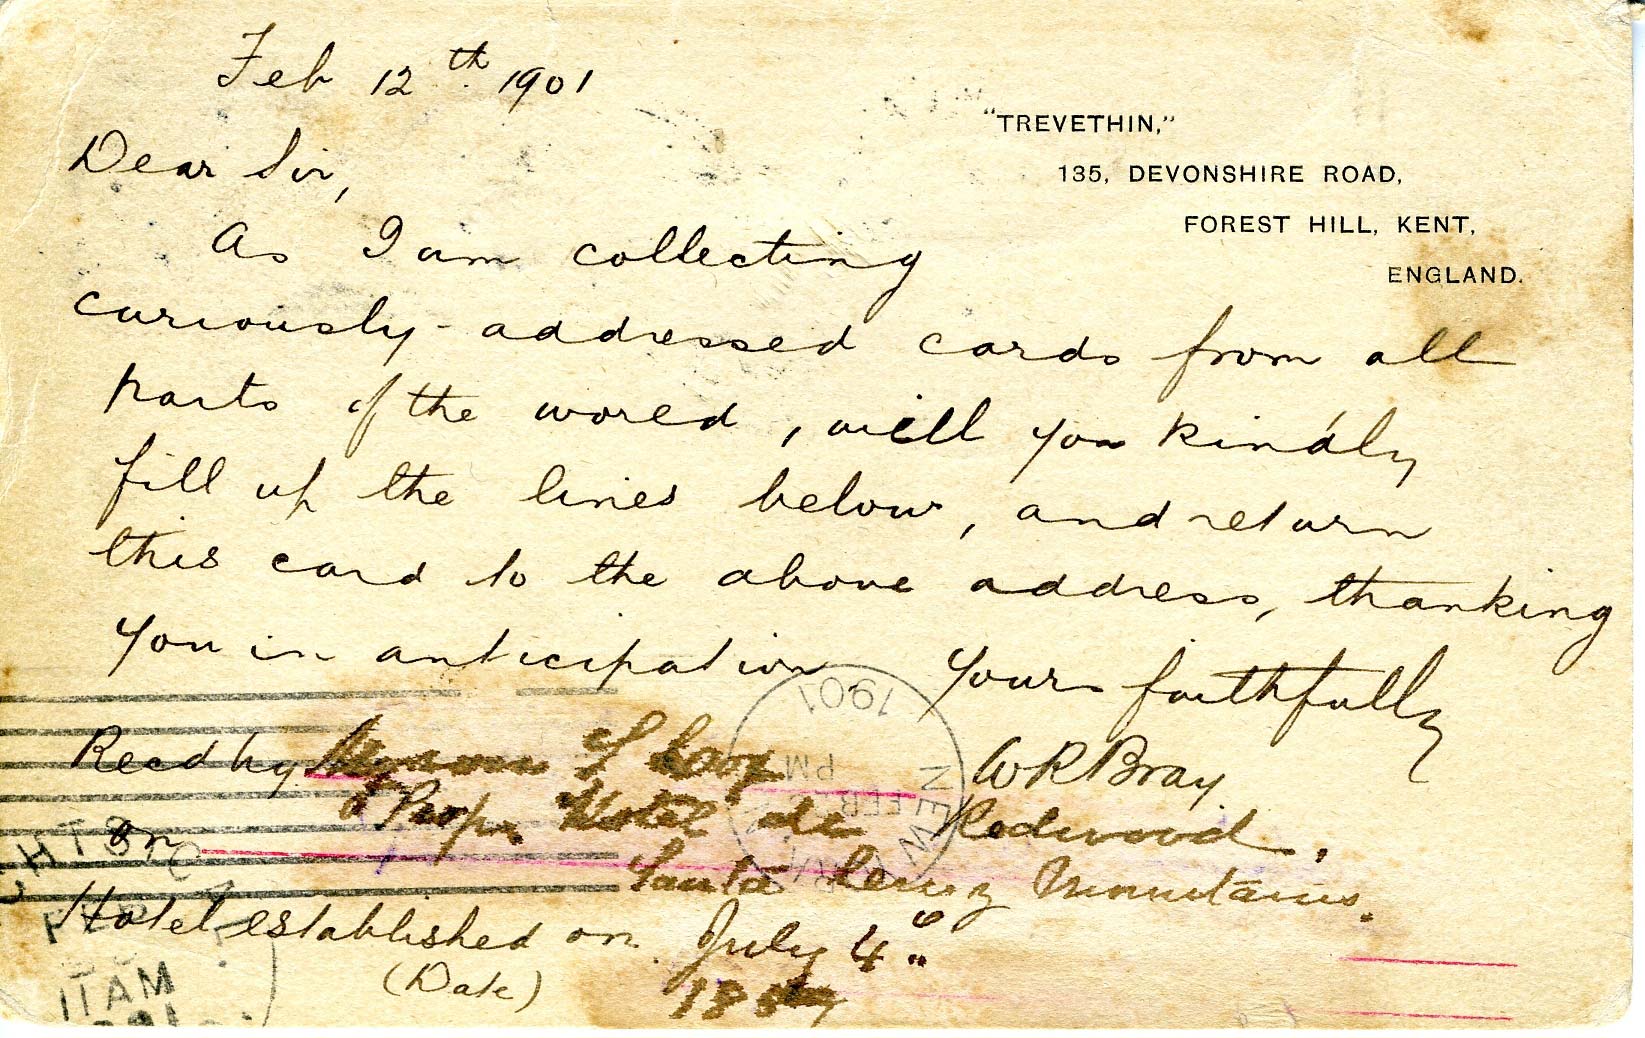 Feb 12th 1901
"TREVETHIN,"
135, DEVONSHIRE ROAD,
FOREST HILL, KENT,
ENGLAND.
Dear Sir,
As I am collecting
curiously-addressed cards from all
parts of the world, will you kindly
fill up the lines below, and return
this card to the above address, thanking
you in anticipation Yours faithfully
WRBray
Recd by
Propr. Hotel de Redwood.
on
Santa Cruz Mountains.
Hotel established on July 4"
(Date)
1901
PM
FEB
NEW
FEB
11 AM